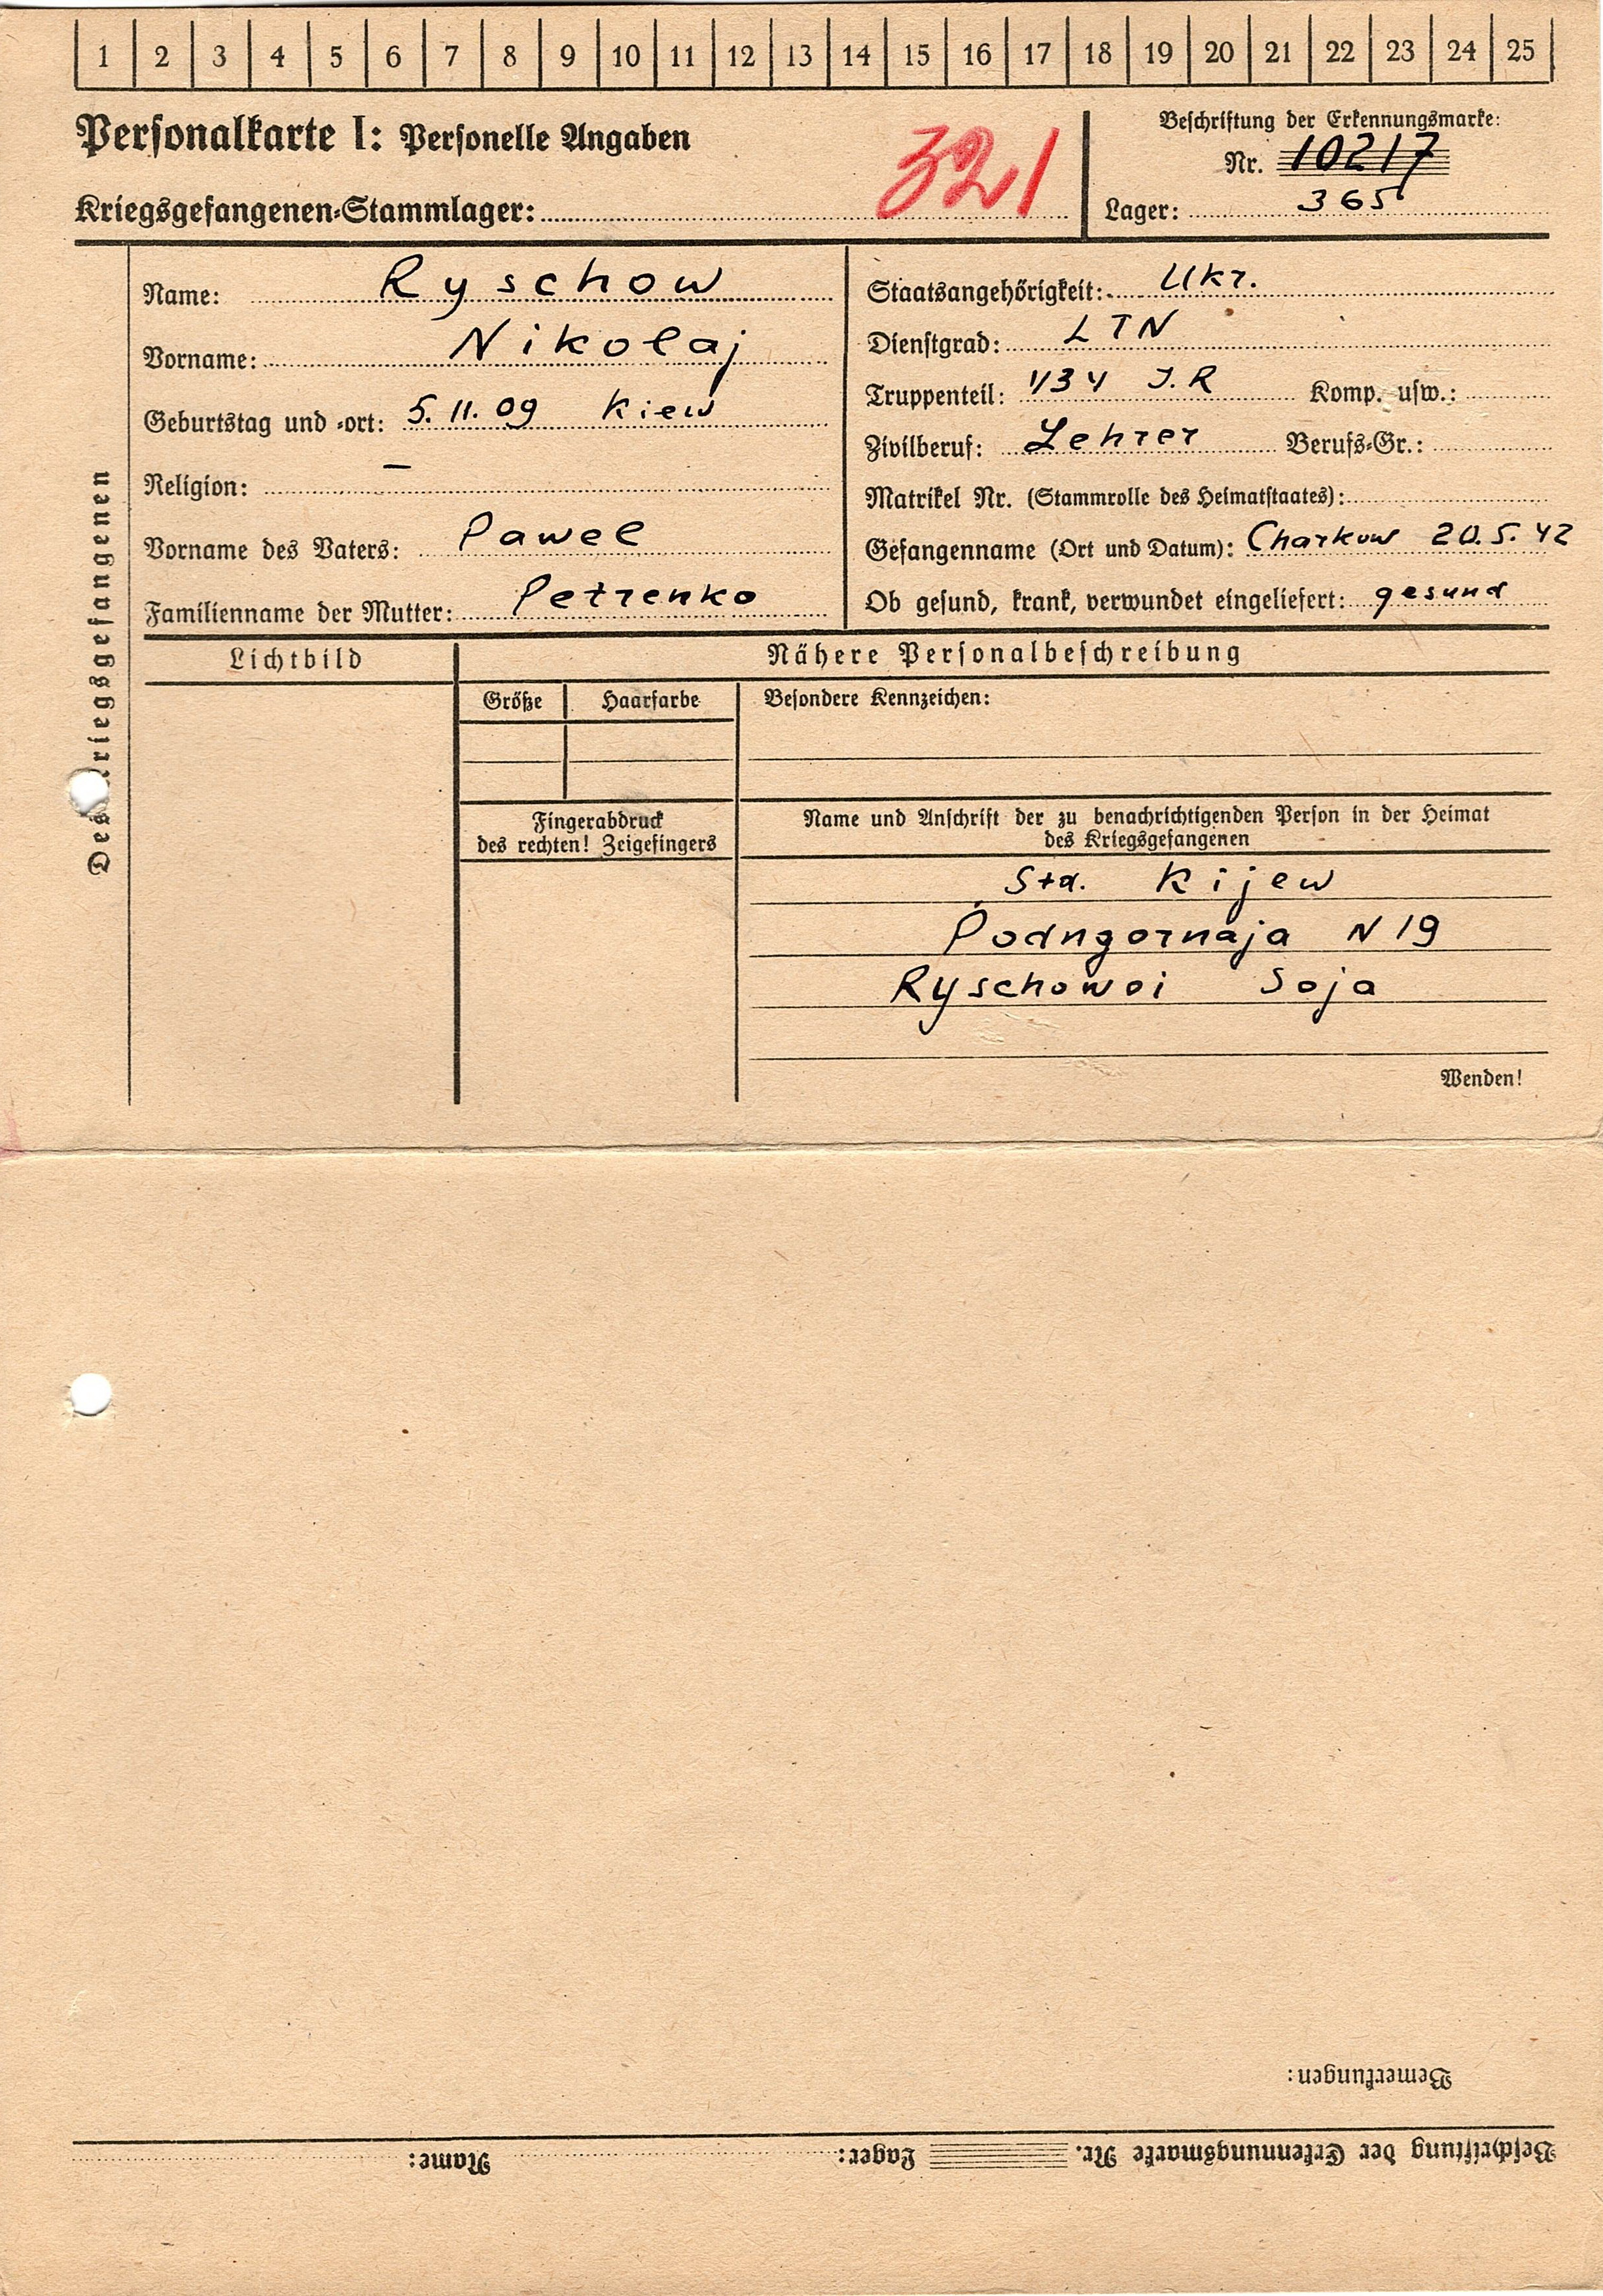 1 2 3 4 5 6 7 8 9 10 11 12 13 14 15 16 17 18 19 20 21 22 23 24 25
Personalkarte I: Personelle Angaben
321
Kriegsgefangenen-Stammlager:
Beschriftung der Erkennungsmarke:
Nr. 10217
Lager: 365
Des Kriegsgefangenen
Name: Ryschow
Vorname: Nikolaj
Geburtstag und -ort: 5. 11. 09 Kiew
Religion: —
Vorname des Vaters: Pawel
Familienname der Mutter: Petrenko
Staatsangehörigkeit: Ukr.
Dienstgrad: LTN
Truppenteil: 1134 I.R Komp. usw.:
Zivilberuf: Lehrer Berufs-Gr.:
Matrikel Nr. (Stammrolle des Heimatstaates):
Gefangenname (Ort und Datum): Charkow 20.5.42
Ob gesund, krank, verwundet eingeliefert: gesund
Lichtbild
Nähere Personalbeschreibung
Größe Haarfarbe
Besondere Kennzeichen:
Fingerabdruck
des rechten! Zeigefingers
Name und Anschrift der zu benachrichtigenden Person in der Heimat
des Kriegsgefangenen
Std. Kijew
Podngornaja N 19
Ryschowoi Soja
Wenden!
Bemerkungen:
Beschriftung der Erkennungsmarke Nr. Lager: Name: